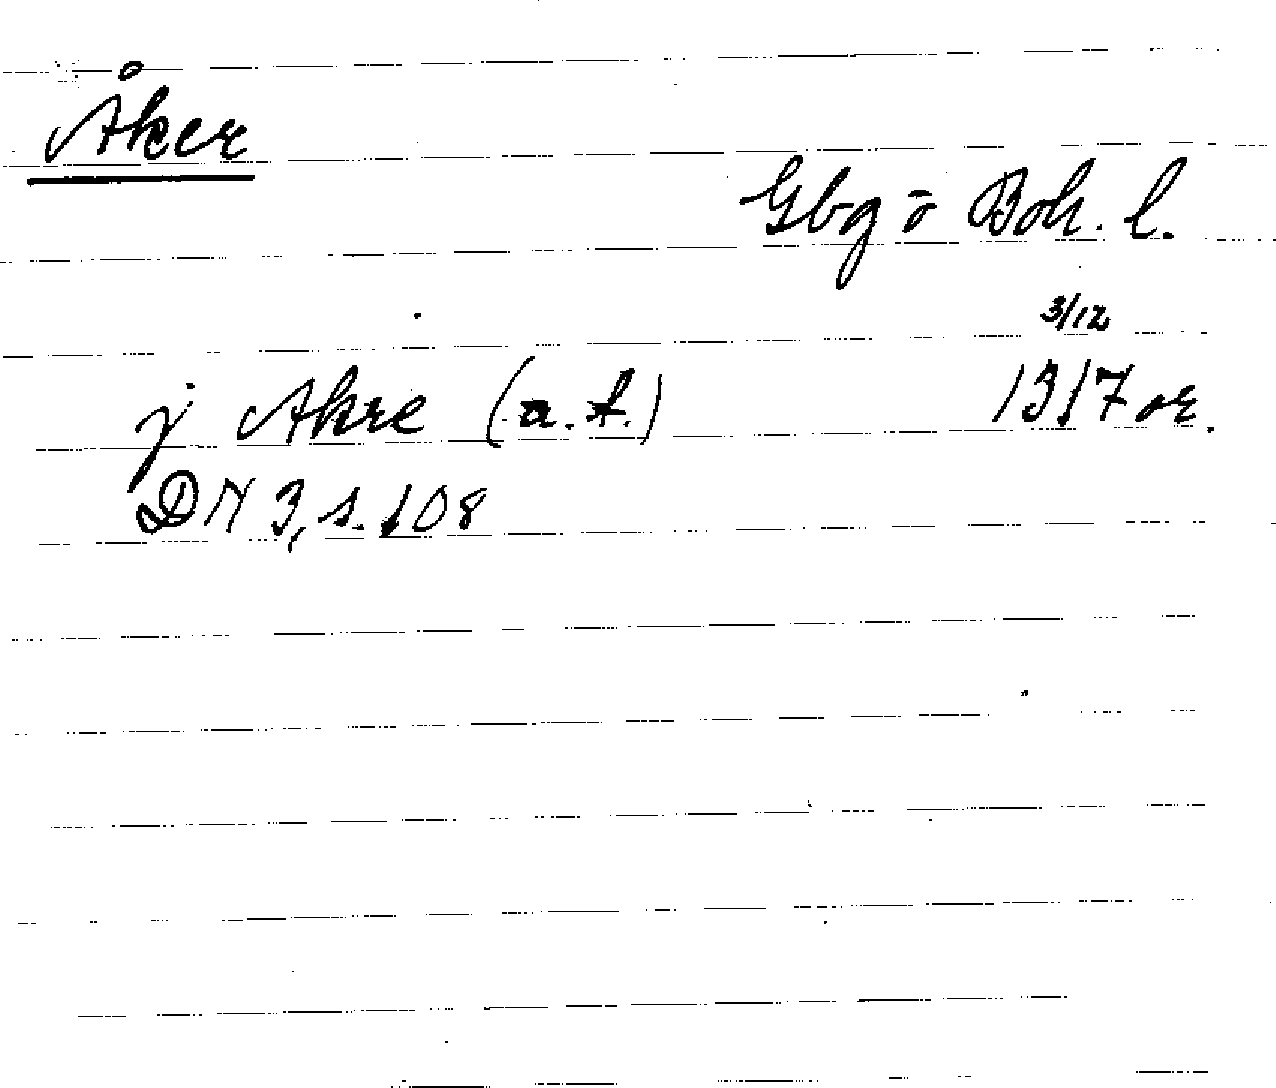 Åker
Gbg o Boh. l.
3/12
j Akre (a. f.) 1317 or.
DN 3, s. 108